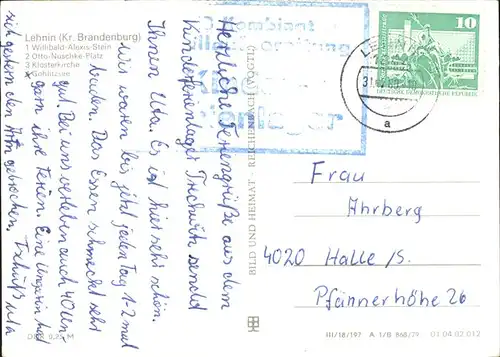 Lehnin (Kr. Brandenburg)
1 Willibald-Alexis-Stein
2 Otto-Nuschke-Platz
3 Klosterkirche
4 Gohlitzsee
Herzliche Feriengrüße aus dem
Kinderferienlager Trechwitz sendet
Ihnen Uta. Es ist hier sehr schön.
Wir waren bis jetzt jeden Tag 1-2 mal
baden. Das Essen schmeckt sehr
gut. Bei uns verleben auch 40 Un-
garn ihre Ferien. Eine Ungarin hat
sich gestern den Arm gebrochen. Tschüß Uta
DDR 0,25 M
BILD UND HEIMAT REICHENBACH (VOGTL)
10
DEUTSCHE DEMOKRATISCHE REPUBLIK
LEHNIN
a
Frau
Ahrberg
4020 Halle/S.
Pfännerhöhe 26
III/18/197 A 1/B 868/79 01 04 02 012